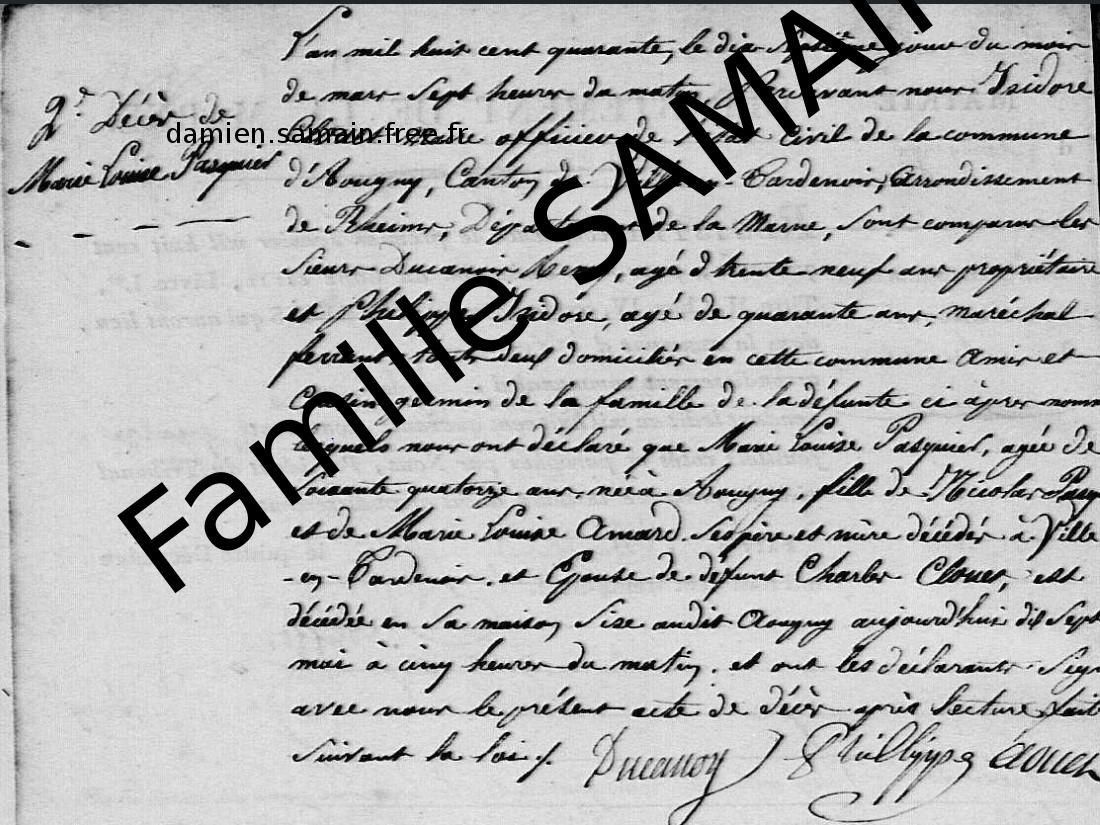 L'an mil huit cent quarante, le dix septième jour du mois
de mars sept heures du matin, Pardevant nous Isidore
2e Décès de
Marie Louise Pasquier
damien.samain.free.fr
Clouet Maire officier de l'Etat Civil de la commune
d'Aougny, Canton de Ville-en-Tardenois, Arrondissement
de Rheims, Département de la Marne, sont comparus les
sieurs Ducanoir Remy, agé d trente neuf ans propriétaire
et Philippe Isidore, agé de quarante ans, maréchal
ferrant, touts deux domiciliés en cette commune Amis et
Cousin germain de la famille de la défunte ci après nomm
lesquels nous ont déclaré que Marie Louise Pasquier, agée de
soixante quatorze ans, née à Aougny, fille de Nicolas Pasq
et de Marie Louise Amard ses père et mère décédés à Ville
-en-Tardenois, et Epouse de défunt Charles Clouet, est
décédée en sa maison size audit Aougny aujourd'hui dix sept
mai à cinq heures du matin. et ont les déclarants sign
avec nous le présent acte de décès après lecture fait
suivant la loi /. Ducanoy Philippe Clouet
Famille SAMAIN